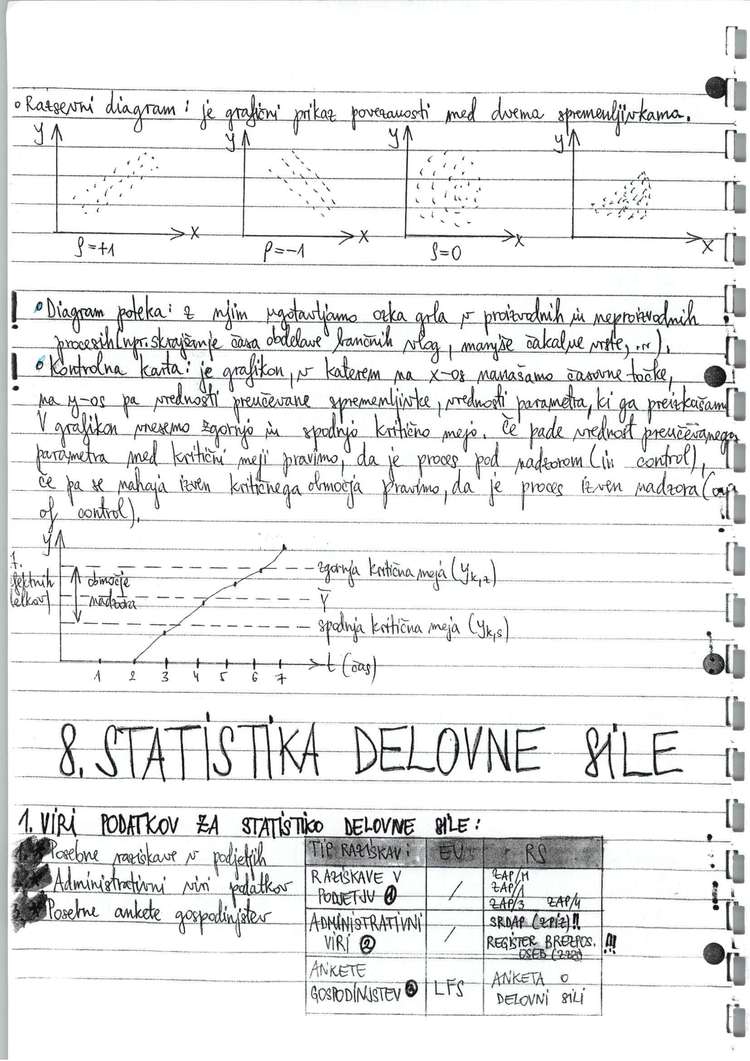 • Razsevni diagram: je grafični prikaz povezanosti med dvema spremenljivkama.
y y y y
x x x x
ρ=+1 ρ=-1 ρ=0
! • Diagram poteka: z njim ugotavljamo ozka grla v proizvodnih in neproizvodnih
procesih (npr. skrajšanje časa obdelave bančnih vlog, manjše čakalne vrste, ...).
! • Kontrolna karta: je grafikon, v katerem na x-os nanašamo časovne točke,
na y-os pa vrednosti preučevane spremenljivke, vrednosti parametra, ki ga preizkušamo
V grafikon vnesemo zgornjo in spodnjo kritično mejo. Če pade vrednost preučevanega
parametra med kritični meji pravimo, da je proces pod nadzorom (in control),
če pa se nahaja izven kritičnega območja pravimo, da je proces izven nadzora (out
of control).
y
območje
nadzora
zgornja kritična meja (yk,z)
Y
spodnja kritična meja (yk,s)
t (čas)
1 2 3 4 5 6 7
8. STATISTIKA DELOVNE SILE
1. VIRI PODATKOV ZA STATISTIKO DELOVNE SILE:
1. Posebne raziskave v podjetjih
2. Administrativni viri podatkov
3. Posebne ankete gospodinjstev
TIP RAZISKAV: EU RS
RAZISKAVE V PODJETJU 1 / ZAP/M
ZAP/1
ZAP/3 ZAP/4
ADMINISTRATIVNI VIRI 2 / SRDAP (ZPIZ)!!
REGISTER BREZPOS. OSEB (ZZZ) !!!
ANKETE GOSPODINJSTEV 3 LFS ANKETA O
DELOVNI SILI